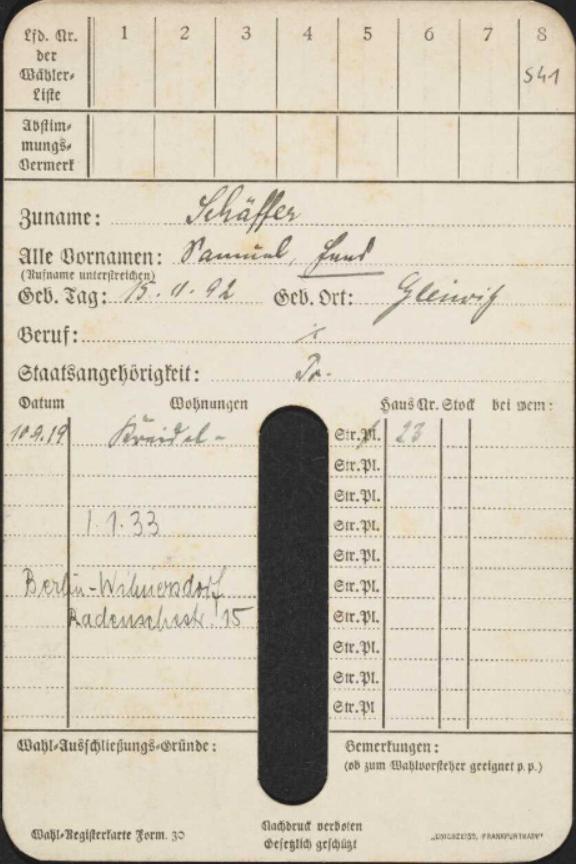 Lfd. Nr. der Wähler-Liste 1 2 3 4 5 6 7 8
541
Abstim-mungs-Vermerk
Zuname: Schäffer
Alle Vornamen: Samuel,
(Rufname unterstreichen)
Geb. Tag: 15. 11. 92 Geb. Ort: Gleiwitz
Beruf:
Staatsangehörigkeit: Pr.
Datum Wohnungen Haus Nr. Stock bei wem:
10.9.19 Kreidel- Str.Pl. 23
Str.Pl.
Str.Pl.
1.1.33 Str.Pl.
Str.Pl.
Berlin-Wilmersdorf Str.Pl.
Badenschestr. 15 Str.Pl.
Str.Pl.
Str.Pl.
Str.Pl
Wahl-Ausschließungs-Gründe: Bemerkungen:
(ob zum Wahlvorsteher geeignet p.p.)
Wahl-Registerkarte Form. 30 Nachdruck verboten
Gesetzlich geschützt